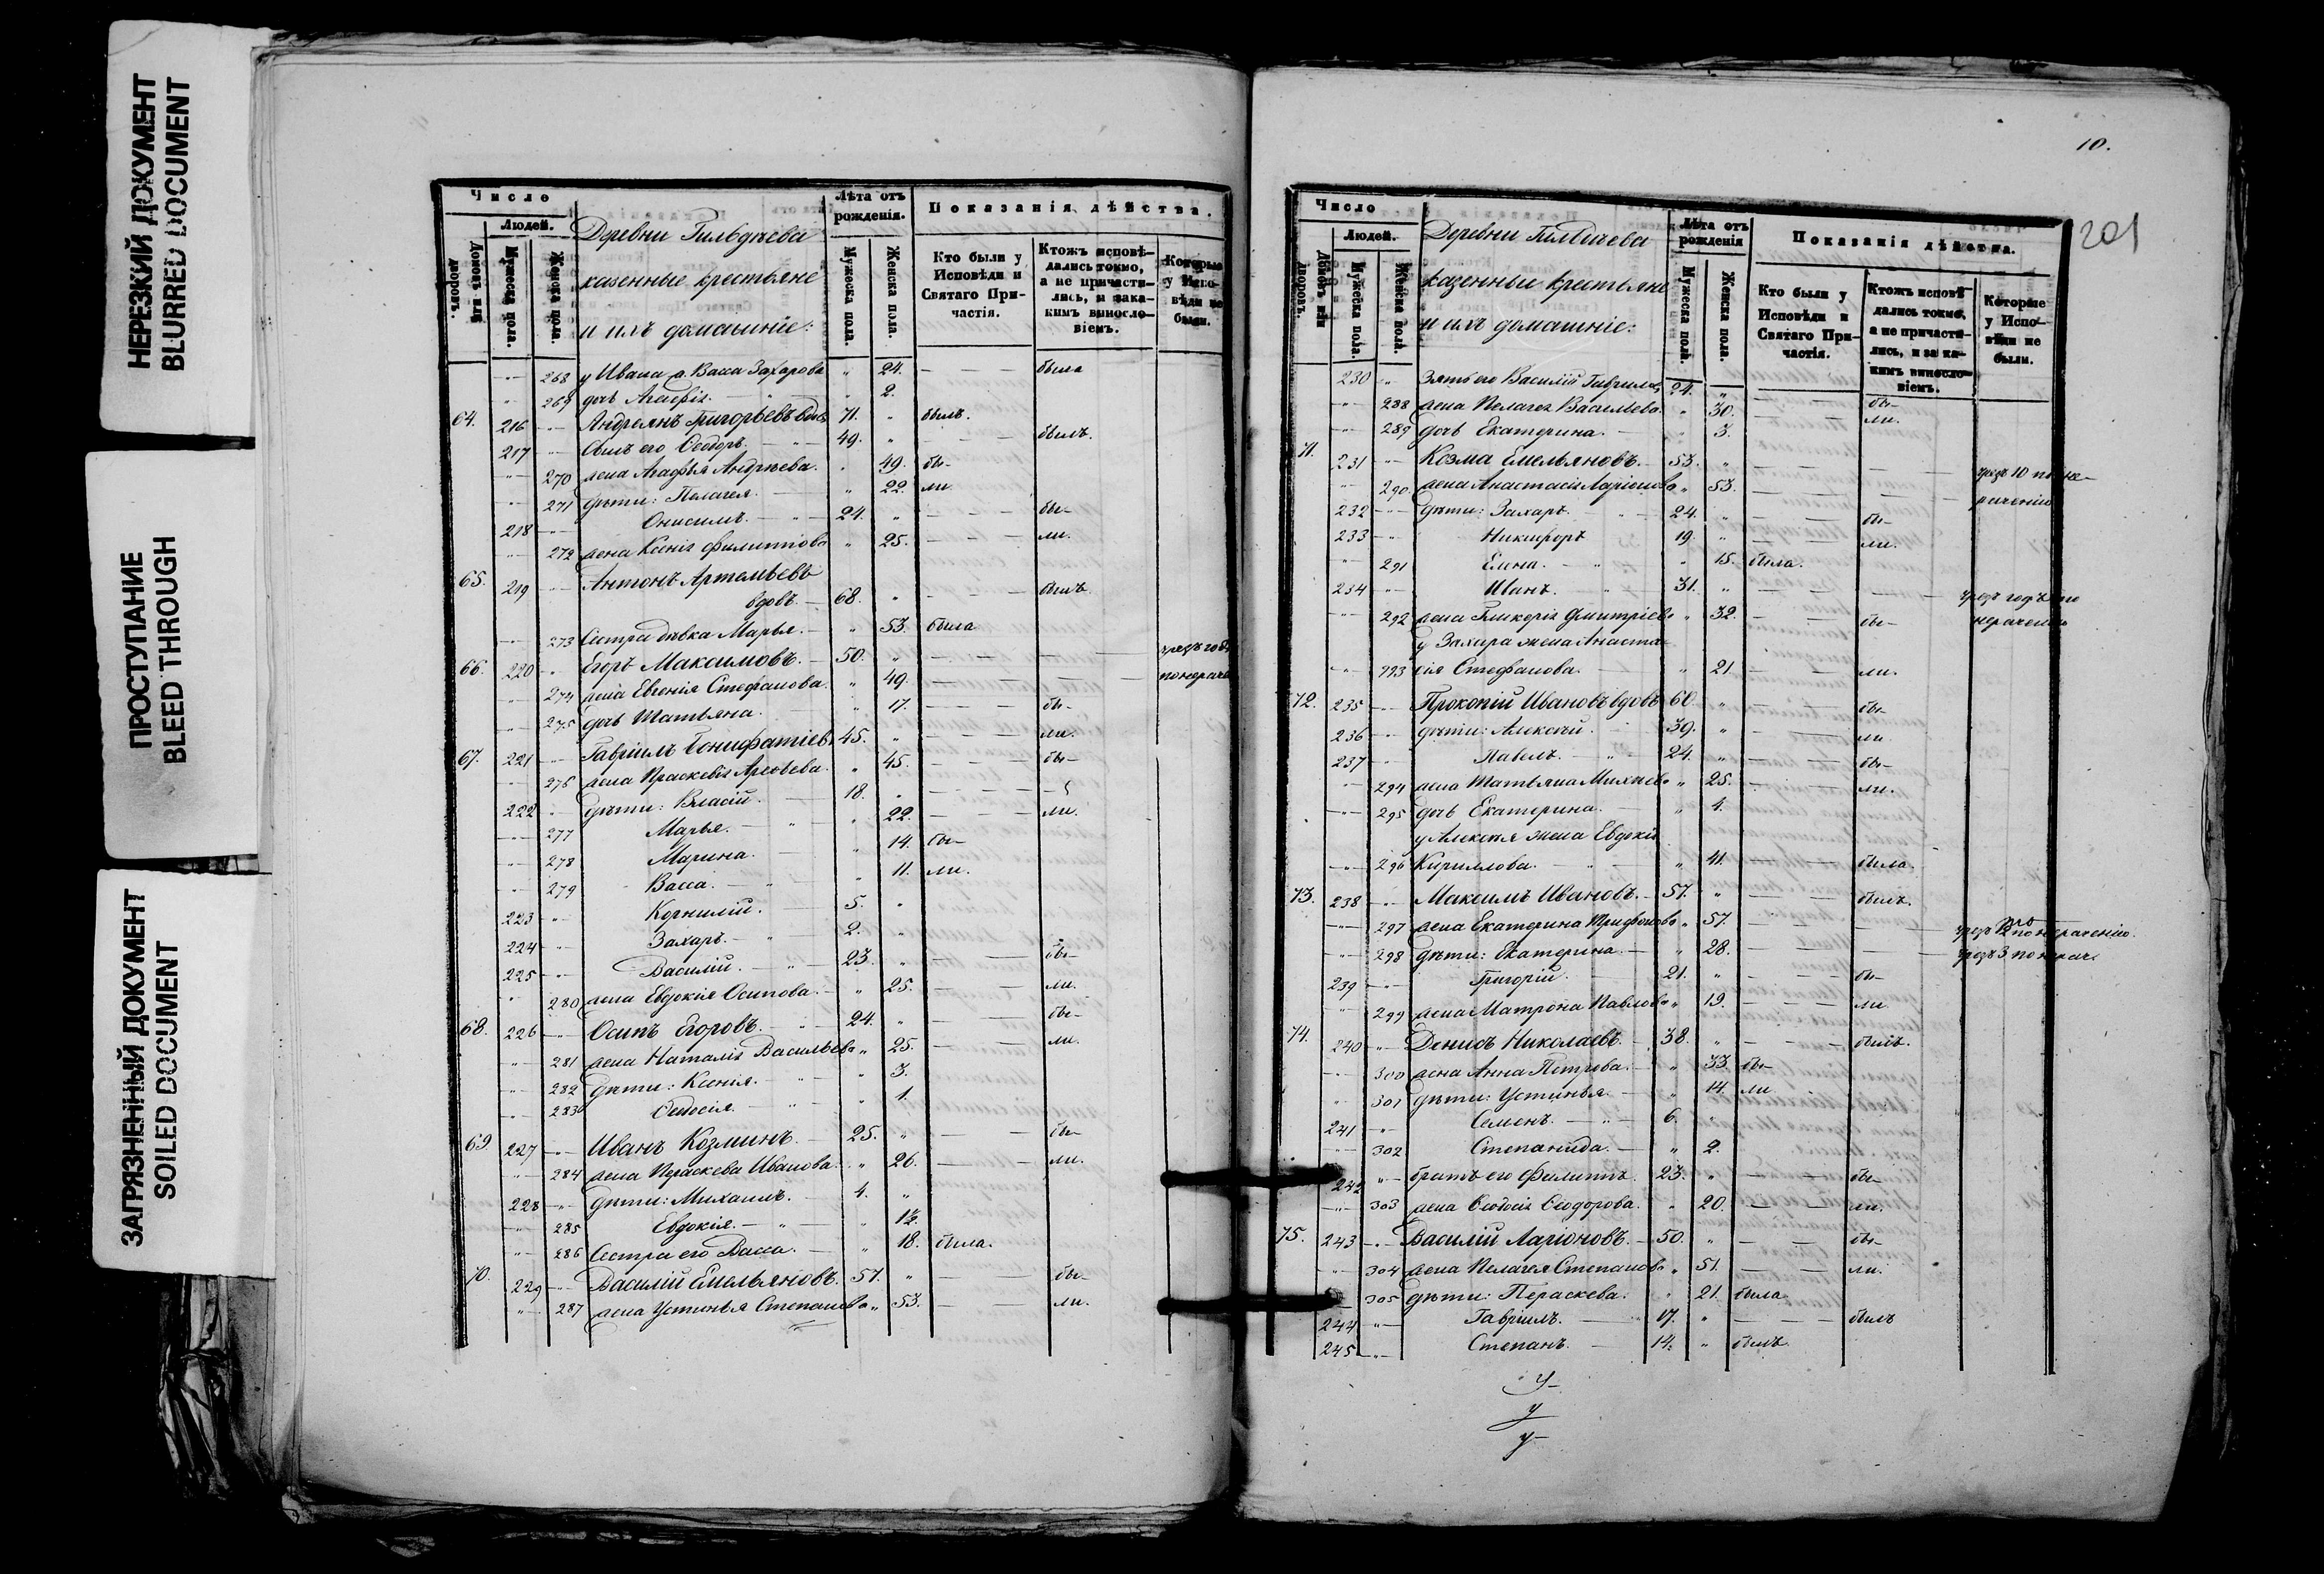 НЕРЕЗКИЙ ДОКУМЕНТ
BLURRED DOCUMENT
ПРОСТУПАНИЕ
BLEED THROUGH
ЗАГРЯЗНЕННЫЙ ДОКУМЕНТ
SOILED DOCUMENT
Число
Людей.
Домовъ или дворовъ.
Мужеска пола.
Женска пола.
Деревни Гильдѣева
казенные крестьяне
и ихъ домашніе:
Лѣта отъ рожденія.
Мужеска пола.
Женска пола.
Показанія дѣйства.
Кто были у Исповѣди и Святаго Причастія.
Ктожъ исповѣдались токмо, а не причастились, и за какимъ винословіемъ.
Которые у Исповѣди не были.
268 у Ивана ж. Васса Захарова „ 24. была
269 дочь Агафія „ 2.
64. 216 Андреянъ Григорьевъ вдовъ 71. „ былъ.
217 Сынъ его Ѳеодоръ. 49. „ былъ.
270 жена Агафья Андрѣева. „ 49. бы-
271 дѣти: Пелагея. „ 22. ли
218 Онисимъ. 24. „ бы-
272 жена Ксенія Филиппова „ 25. ли.
65. 219 Антонъ Артемьевъ
вдовъ. 68. „ былъ.
273 Сестра дѣвка Марья. „ 53. была
66. 220 Егоръ Максимовъ. 50. „ чрезъ годъ
274 жена Евгенія Стефанова. „ 49. по нераче
275 дочь Татьяна. „ 17. бы-
67. 221 Гавріилъ Бонифатіевъ 45. „ ли.
276 жена Праскевія Арефьева. „ 45. бы-
222 дѣти: Власій. 18. „
277 Марья. „ 22. ли.
278 Марина. „ 14. бы-
279 Васса. „ 11. ли.
223 Корнилій. 5. „
224 Захаръ. 2. „
225 Василій. 23. „ бы-
280 жена Евдокія Осипова. „ 25. ли.
68. 226 Осипъ Егоровъ. 24. „ бы-
281 жена Наталія Васильева „ 25. ли.
282 дѣти: Ксенія. „ 3.
283 Ѳедосія. „ 1.
69 227 Иванъ Козминъ. 25. „ бы-
284 жена Пераскева Иванова. „ 26. ли.
228 дѣти: Михаилъ. 4. „
285 Евдокія. „ 1½.
286 Сестра его Васса. „ 18. была.
70. 229 Василій Емельяновъ. 57. „ бы-
287 жена Устинья Степанова „ 53. ли.
10.
201
Число
Людей.
Домовъ или дворовъ.
Мужеска пола.
Женска пола.
Деревни Гильдѣева
казенные крестьяне
и ихъ домашніе:
Лѣта отъ рожденія
Мужеска пола.
Женска пола.
Показанія дѣйства.
Кто были у Исповѣди и Святаго Причастія.
Ктожъ исповѣдались токмо, а не причастились, и за какимъ винословіемъ.
Которые у Исповѣди не были.
230 „ Зять его Василій Гавриловъ 24. „ бы-
288 жена Пелагея Васильева „ 30. ли.
289 дочь Екатерина. „ 3.
71. 231 Козма Емельяновъ. 53. „ чрезъ 10 по не-
290 жена Анастасія Ларіонова „ 53. раченію
232 дѣти: Захаръ. 24. „ бы-
233 Никифоръ 19. „ ли.
291 Елена. „ 15. была.
234 Иванъ. 31. „ чрезъ годъ по
292 жена Гликерія Дмитріева „ 32. бы- нераченію
у Захара жена Анаста-
293 сія Стефанова. „ 21. ли.
72. 235 Прокопій Ивановъ вдовъ 60. „ бы-
236 дѣти: Алексѣй. 39. „ ли
237 Павелъ. 24. „ бы-
294 жена Татьяна Михѣева „ 25. ли.
295 дочь Екатерина. „ 4.
у Алексѣя жена Евдокія
296 Кириллова. „ 41. была.
73. 238 Максимъ Ивановъ. 57. „ былъ.
297 жена Екатерина Трифонова „ 57. чрезъ 2 по нераченію.
298 дѣти: Екатерина. „ 28. чрезъ 3 по нерач.
239 Григорій. 21. „ бы-
299 жена Матрона Павлова „ 19. ли
74. 240 Денисъ Николаевъ. 38. „ былъ.
300 жена Анна Петрова. „ 33. бы-
301 дѣти: Устинья. „ 14. ли
241 Семенъ. 6. „
302 Степанида. „ 2.
242 братъ его Филиппъ. 23. „ бы-
303 жена Ѳеодосія Ѳеодорова. „ 20. ли.
75. 243 Василій Ларіоновъ. 50. „ бы-
304 жена Пелагея Степанова „ 51. ли.
305 дѣти: Пераскева. „ 21. была
244 Гавріилъ. 17. „ былъ
245 Степанъ. 14. „ былъ.